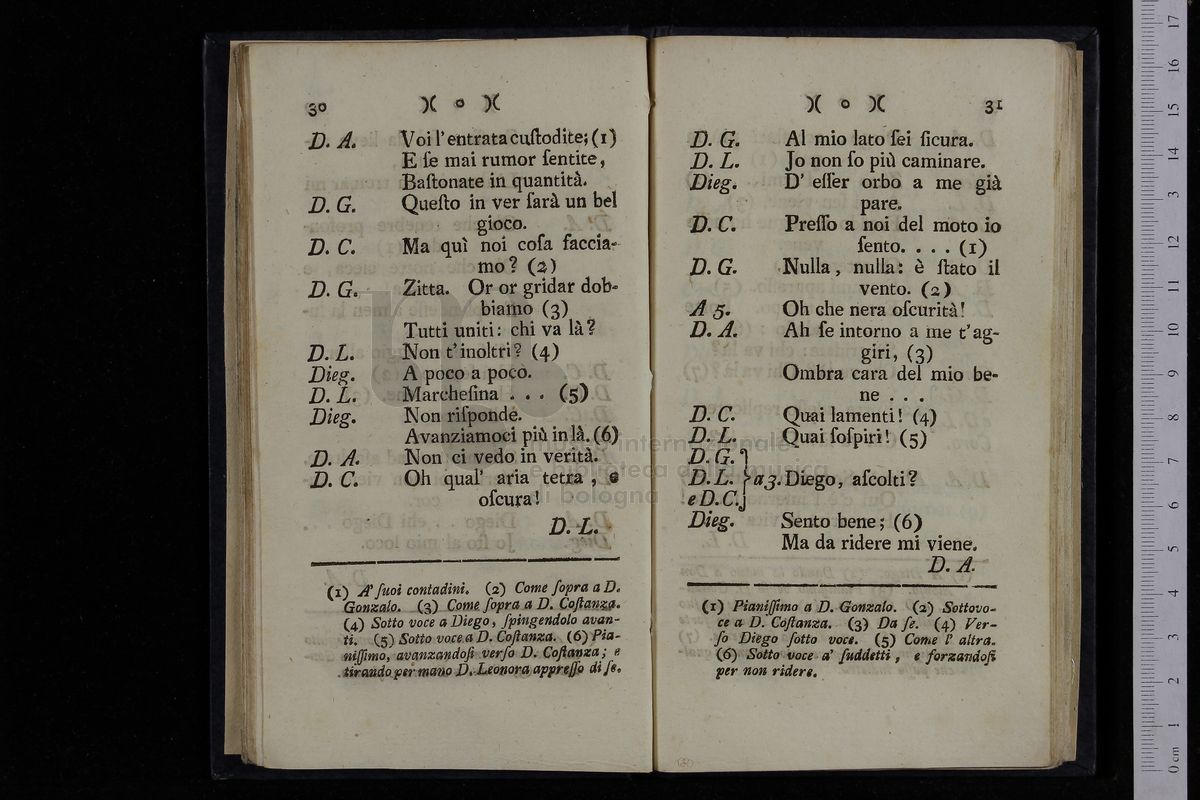 30 )( o )(
D. A. Voi l'entrata cuſtodite; (1)
E ſe mai rumor ſentite,
Baſtonate in quantità.
D. G. Queſto in ver ſarà un bel
gioco.
D. C. Ma quì noi coſa faccia-
mo? (2)
D. G. Zitta. Or or gridar dob-
biamo (3)
Tutti uniti: chi va là?
D. L. Non t'inoltri? (4)
Dieg. A poco a poco.
D. L. Marcheſina . . . (5)
Dieg. Non riſponde.
Avanziamoci più in là. (6)
D. A. Non ci vedo in verità.
D. C. Oh qual' aria tetra, e
oſcura!
D. L.
(1) A' ſuoi contadini. (2) Come ſopra a D.
Gonzalo. (3) Come ſopra a D. Coſtanza.
(4) Sotto voce a Diego, ſpingendolo avan-
ti. (5) Sotto voce a D. Coſtanza. (6) Pia-
niſſimo, avanzandoſi verſo D. Coſtanza; e
tirando per mano D. Leonora appreſſo di ſe.
)( o )( 31
D. G. Al mio lato ſei ſicura.
D. L. Jo non ſo più caminare.
Dieg. D' eſſer orbo a me già
pare.
D. C. Preſſo a noi del moto io
ſento. . . . (1)
D. G. Nulla, nulla: è ſtato il
vento. (2)
A 5. Oh che nera oſcurità!
D. A. Ah ſe intorno a me t'ag-
giri, (3)
Ombra cara del mio be-
ne . . .
D. C. Quai lamenti! (4)
D. L. Quai ſoſpiri! (5)
D. G.
D. L. } a 3. Diego, aſcolti?
e D. C.
Dieg. Sento bene; (6)
Ma da ridere mi viene.
D. A.
(1) Pianiſſimo a D. Gonzalo. (2) Sottovo-
ce a D. Coſtanza. (3) Da ſe. (4) Ver-
ſo Diego ſotto voce. (5) Come l' altra.
(6) Sotto voce a' ſuddetti, e forzandoſi
per non ridere.
museo internazionale
e biblioteca della musica
di bologna
0 cm 1 2 3 4 5 6 7 8 9 10 11 12 13 14 15 16 17